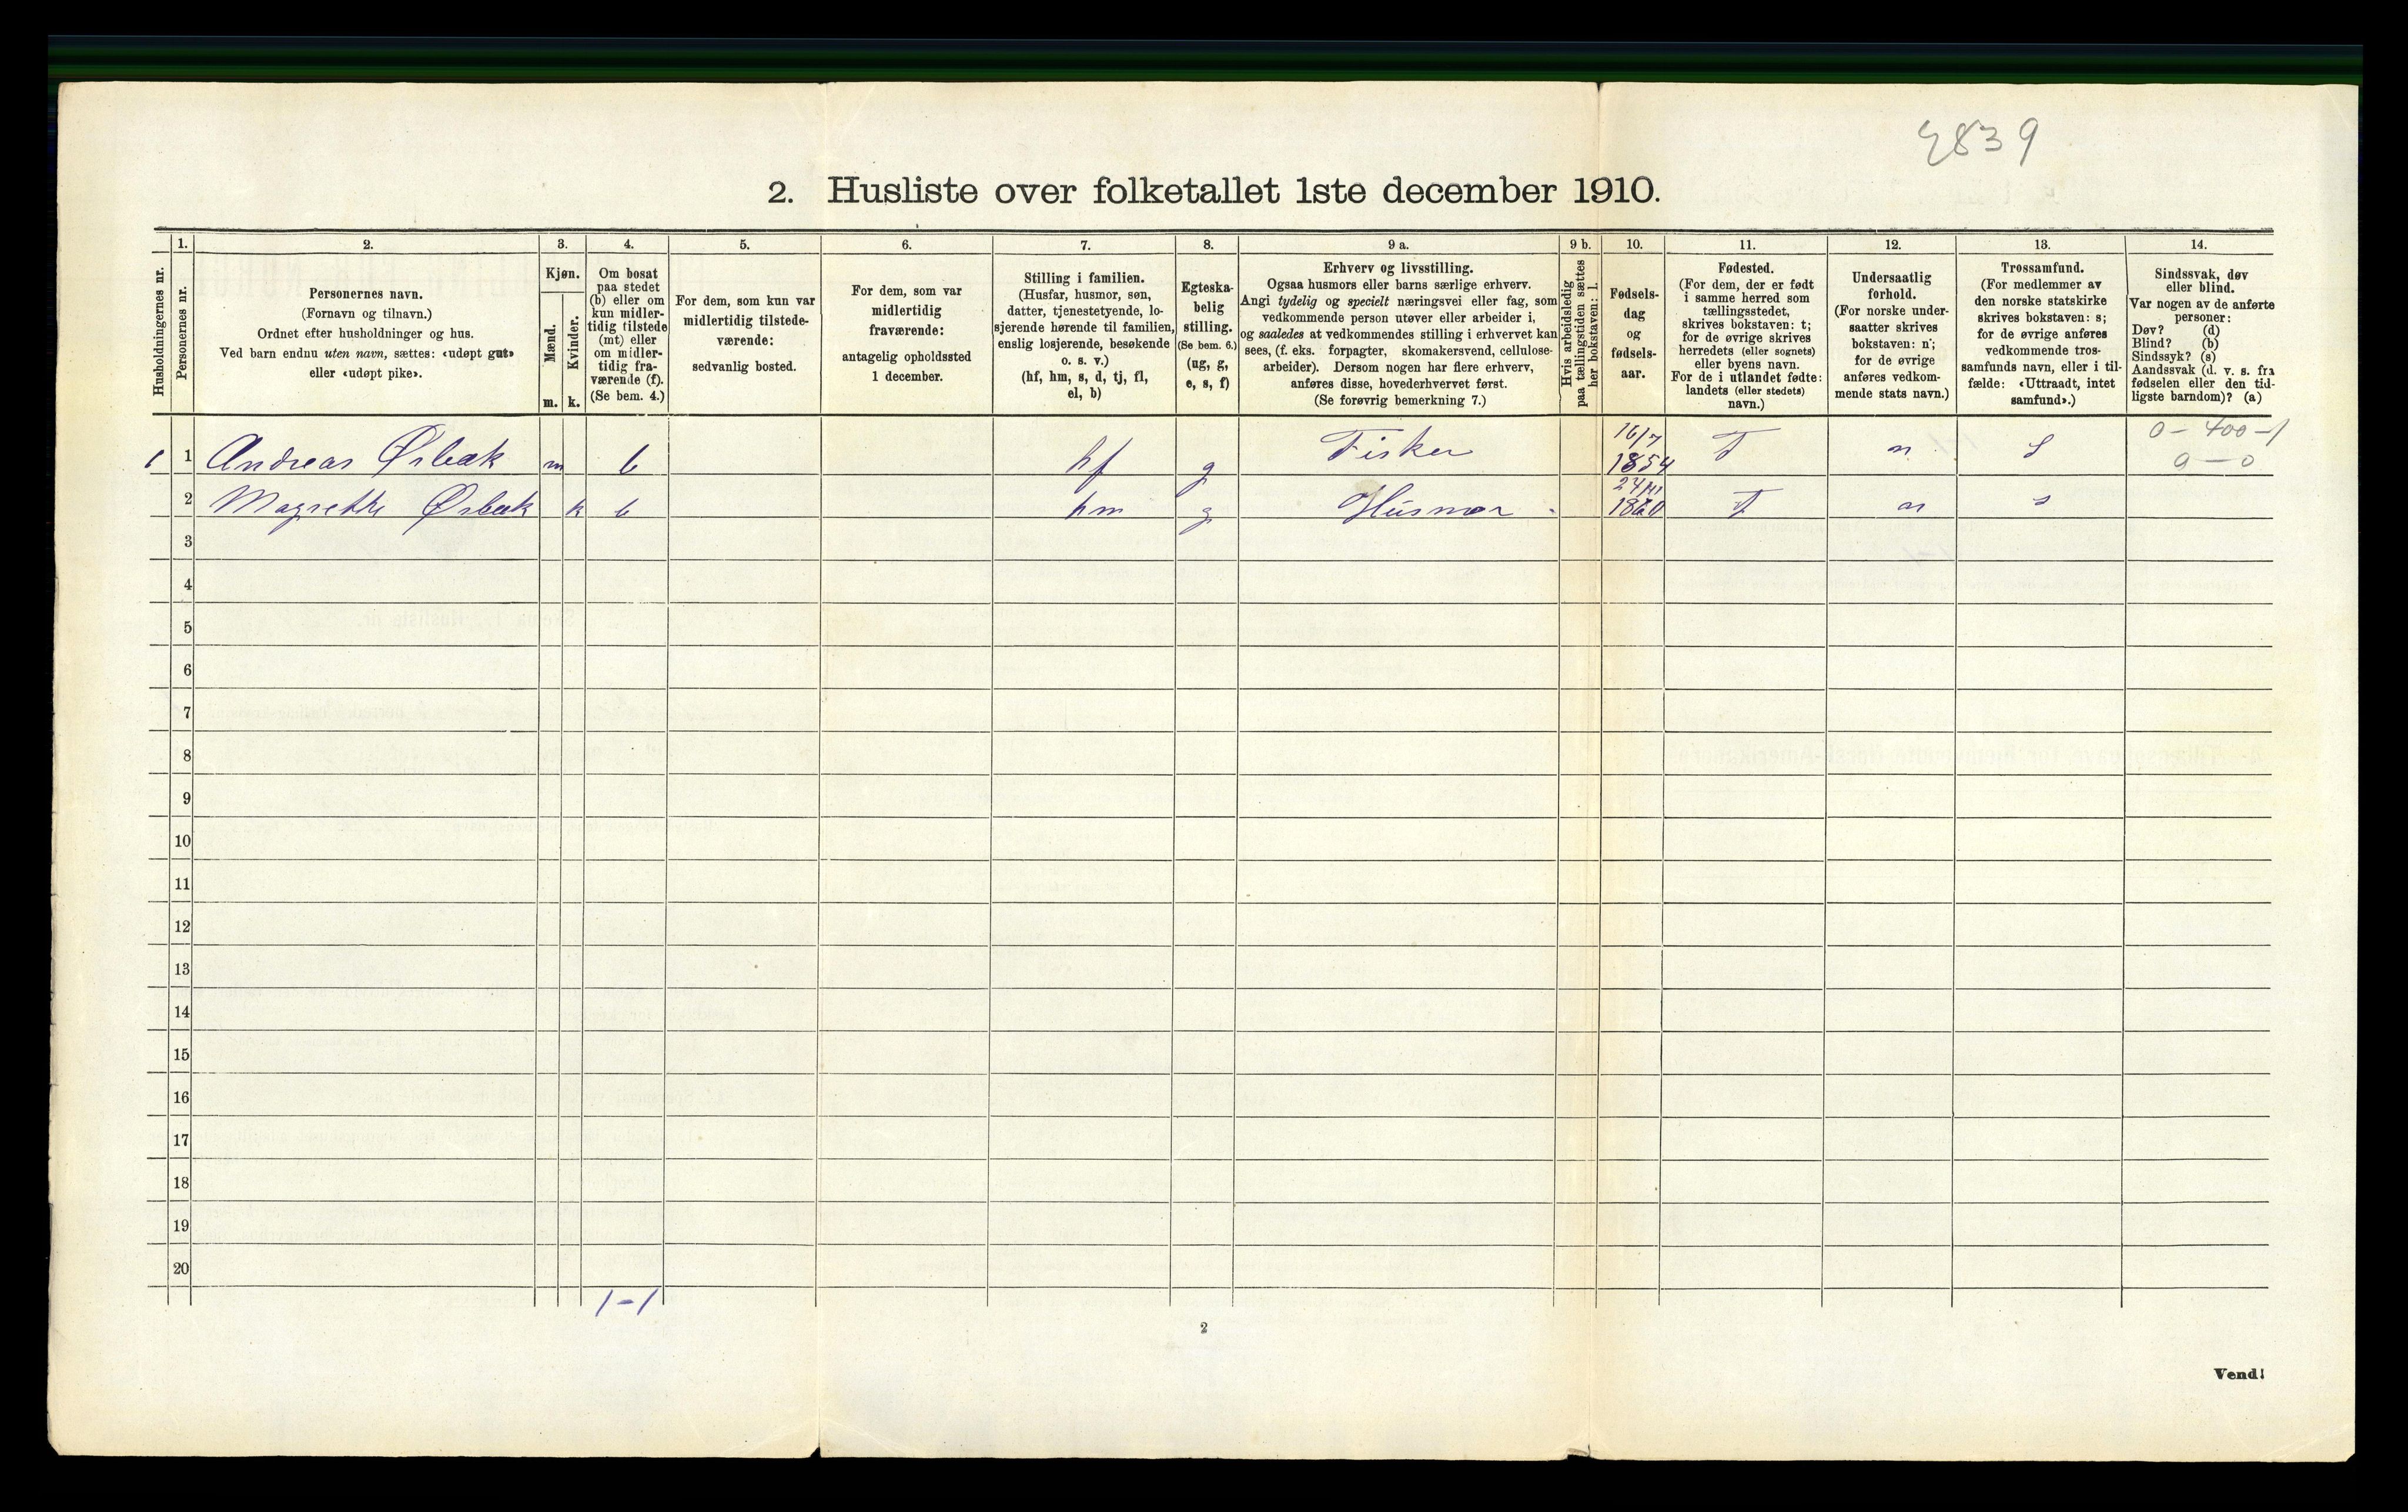 4839
2. Husliste over folketallet 1ste december 1910.
Husholdningernes nr.
1.
Personernes nr.
2.
Personernes navn.
(Fornavn og tilnavn.)
Ordnet efter husholdninger og hus.
Ved barn endnu uten navn, sættes: «udøpt gut»
eller «udøpt pike».
3.
Kjøn.
Mænd.
Kvinder.
m. k.
4.
Om bosat
paa stedet
(b) eller om
kun midler-
tidig tilstede
(mt) eller
om midler-
tidig fra-
værende (f).
(Se bem. 4.)
5.
For dem, som kun var
midlertidig tilstede-
værende:
sedvanlig bosted.
6.
For dem, som var
midlertidig
fraværende:
antagelig opholdssted
1 december.
7.
Stilling i familien.
(Husfar, husmor, søn,
datter, tjenestetyende, lo-
sjerende hørende til familien,
enslig losjerende, besøkende
o. s. v.)
(hf, hm, s, d, tj, fl,
el, b)
8.
Egteska-
belig
stilling.
(Se bem. 6.)
(ug, g,
e, s, f)
9 a.
Erhverv og livsstilling.
Ogsaa husmors eller barns særlige erhverv.
Angi tydelig og specielt næringsvei eller fag, som
vedkommende person utøver eller arbeider i,
og saaledes at vedkommendes stilling i erhvervet kan
sees, (f. eks. forpagter, skomakersvend, cellulose-
arbeider). Dersom nogen har flere erhverv,
anføres disse, hovederhvervet først.
(Se forøvrig bemerkning 7.)
9 b.
Hvis arbeidsledig
paa tællingstiden sættes
her bokstaven: l.
10.
Fødsels-
dag
og
fødsels-
aar.
11.
Fødested.
(For dem, der er født
i samme herred som
tællingsstedet,
skrives bokstaven: t;
for de øvrige skrives
herredets (eller sognets)
eller byens navn.
For de i utlandet fødte:
landets (eller stedets)
navn.)
12.
Undersaatlig
forhold.
(For norske under-
saatter skrives
bokstaven: n;
for de øvrige
anføres vedkom-
mende stats navn.)
13.
Trossamfund.
(For medlemmer av
den norske statskirke
skrives bokstaven: s;
for de øvrige anføres
vedkommende tros-
samfunds navn, eller i til-
fælde: «Uttraadt, intet
samfund».)
14.
Sindssvak, døv
eller blind.
Var nogen av de anførte
personer:
Døv? (d)
Blind? (b)
Sindssyk? (s)
Aandssvak (d. v. s. fra
fødselen eller den tid-
ligste barndom)? (a)
1 1 Andreas Ørbæk m b hf g Fisker 16/7 1854 T n s 0 – 400 – 1
0 – 0
2 Magrethe Ørbæk k b hm g Husmor 1860 T n s
3
4
5
6
7
8
9
10
11
12
13
14
15
16
17
18
19
20
1 – 1
2
Vend!